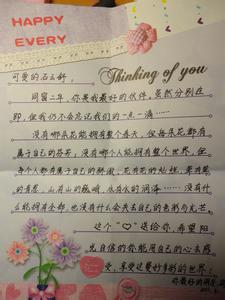 HAPPY
EVERY
Thinking of you
可爱的石云舒：
同窗二年，你是我最好的伙伴。虽然分别在
即，但我仍不会忘记我们的一点一滴……
没有哪朵花能拥有整个春天，但每朵花都有
属于自己的芬芳，没有哪个人能拥有整个世界，但
每个人都有属于自己的骄傲，花有花的灿烂，草有草
的青葱，山有山的巍峨，水有水的润泽……没有什
么能拥有全部，也没有什么会失去自己的色彩与光芒
这个“♡”送给你，希望阳
光自信的你能用自己的心去感
受、享受这美好多彩的世界！
你最好的朋友